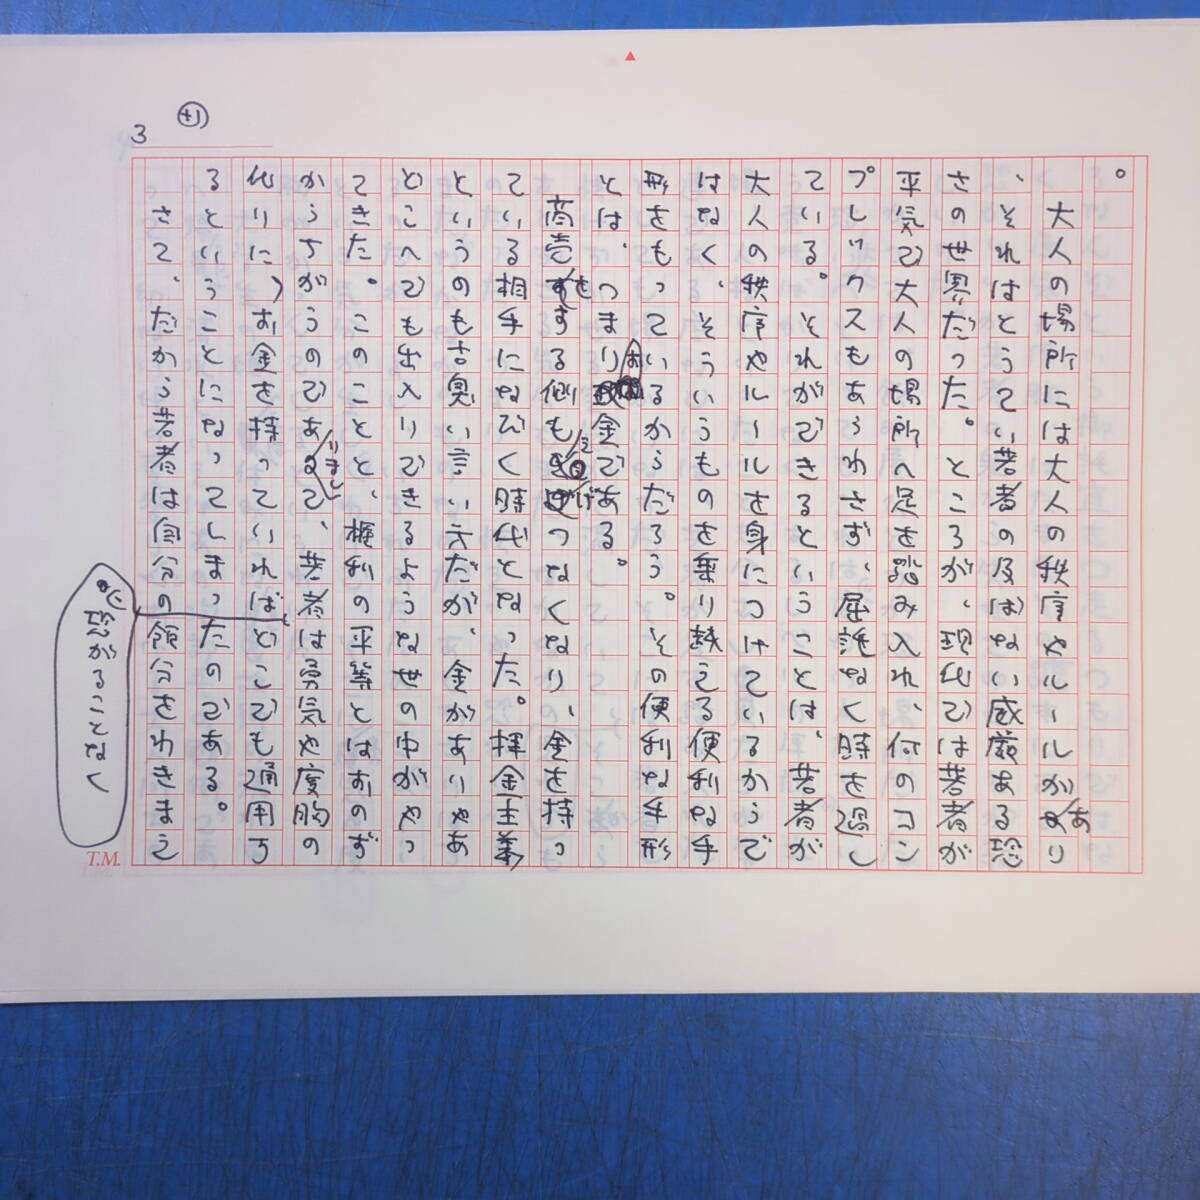 3
。
大人の場所には大人の秩序やルールがあり
、それはとうてい若者の及ばない威厳ある恐
さの世界だった。ところが、現代では若者が
平気で大人の場所へ足を踏み入れ、何のコン
プレックスもあらわさず、屈託なく時を過し
ている。それができるということは、若者が
大人の秩序やルールを身につけているからで
はなく、そういうものを乗り越える便利な手
形をもっているからだろう。その便利な手形
とは、つまりお金である。
商売をする側もえげつなくなり、金を持っ
ている相手になびく時代となった。拝金主義
というのも古臭い言い方だが、金がありゃあ
どこへでも出入りできるような世の中がやっ
てきた。このことと、権利の平等とはおのず
からちがうのでありまして、若者は勇気や度胸の
代りに、お金を持っていればどこでも通用す
るということになってしまったのである。
さて、だから若者は自分の
恐がることなく
領分をわきまえ
T.M.